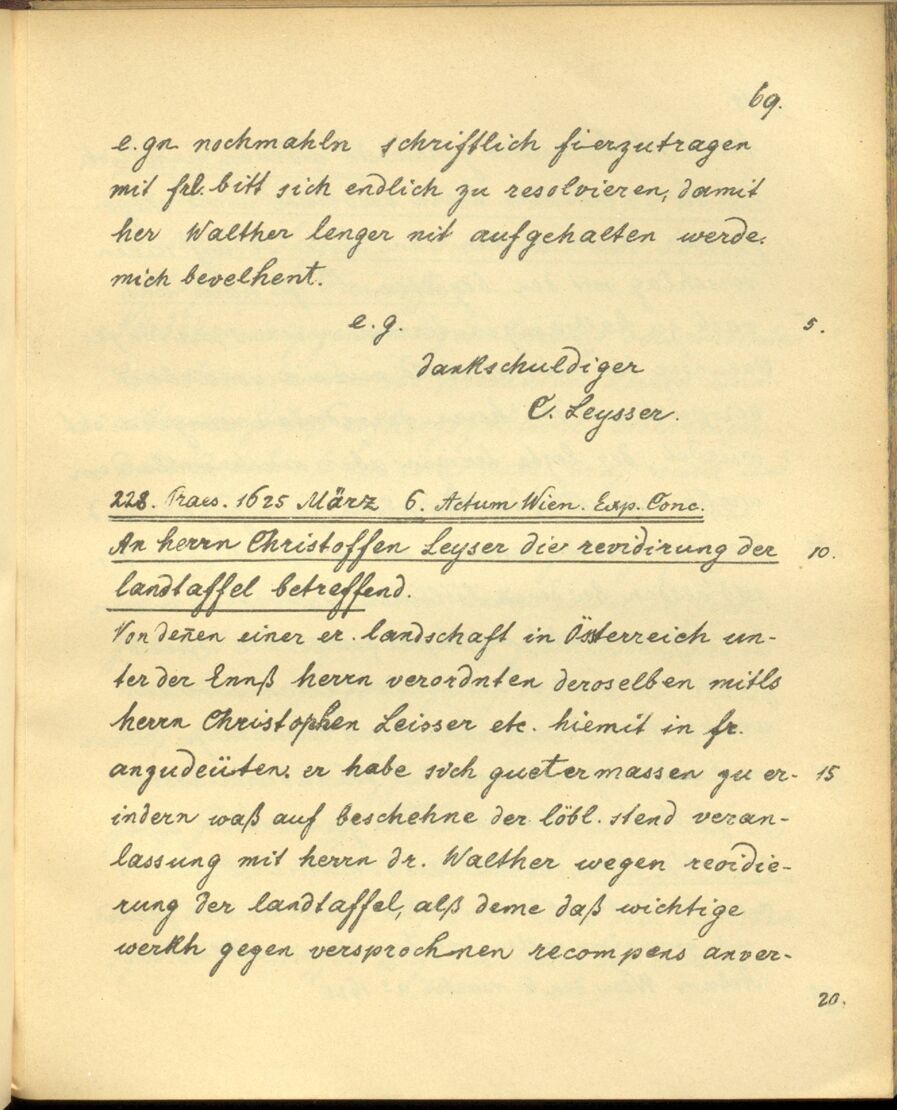 69.
e.gn nochmahln schriftlich fierzutragen
mit frl. bitt sich endlich zu resolvieren, damit
her Walther lenger nit aufgehalten werde.
mich bevelhent.
e.g. 5.
dankschuldiger
C. Leysser.
228. Praes. 1625 März 6. Actum Wien. Exp. Conc.
An herrn Christoffen Leyser die revidirung der 10.
landtaffel betreffend.
Von denen einer er. landschaft in Österreich un-
ter der Ennß herrn verordnten deroselben mitls
herrn Christophen Leisser etc. hiemit in fr.
anzudeüten, er habe sich guetermassen zu er- 15
indern waß auf beschehne der löbl. stend veran-
lassung mit herrn dr. Walther wegen revidie-
rung der landtaffel, alß deme daß wichtige
werkh gegen versprochnen recompens anver-
20.